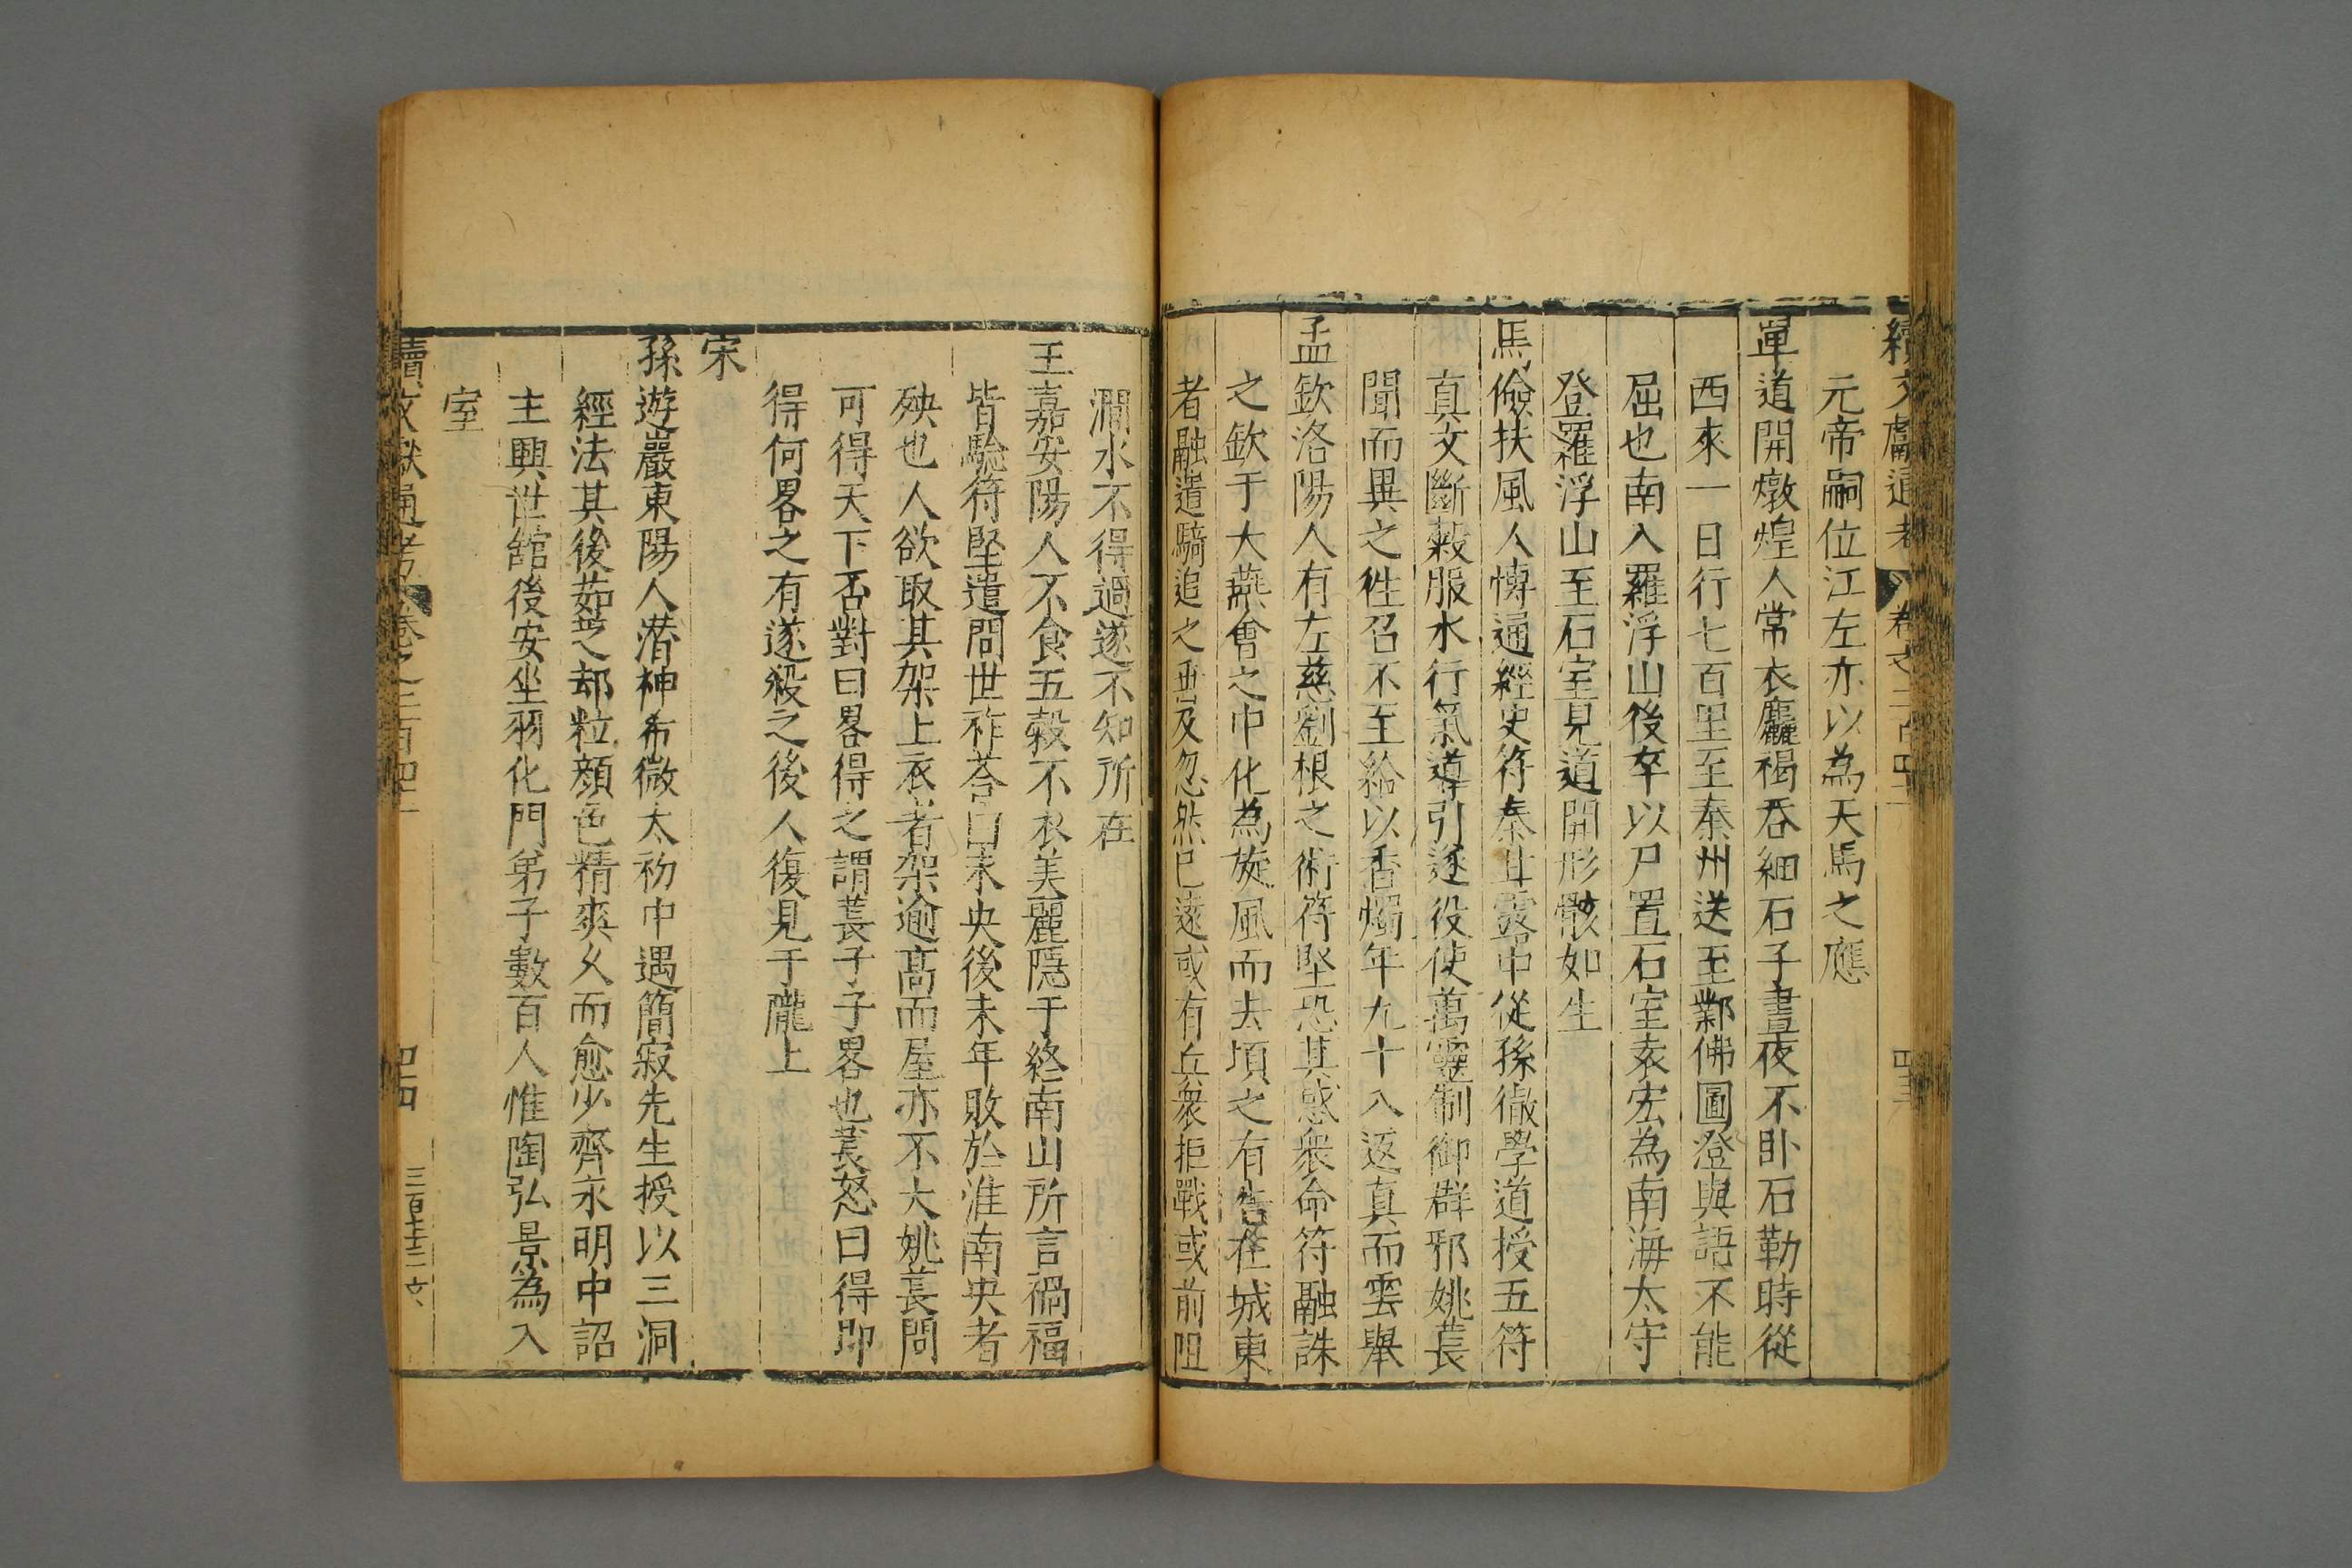 續文獻通考 卷之二百四十二 四三
元帝嗣位江左亦以為天馬之應
單道開燉煌人常衣麤褐吞細石子晝夜不卧石勒時從
西來一日行七百里至秦州送至鄴佛圖澄與語不能
屈也南入羅浮山後卒以尸置石室袁宏為南海太守
登羅浮山至石室見道開形骸如生
馬儉扶風人愽通經史符秦甘露中從孫徹學道授五符
真文斷穀服水行氣導引遂役使萬靈制御群邪姚萇
聞而異之徃召不至給以香燭年九十入返真而雲舉
孟欽洛陽人有左慈劉根之術符堅恐其惑衆命符融誅
之欽于大燕會之中化為旋風而去頃之有告在城東
者融遣騎追之垂及忽然已遠或有兵衆拒戰或前阻
澗水不得過遂不知所在
王嘉安陽人不食五榖不衣美麗隱于終南山所言禍福
皆驗符堅遣問世祚荅曰未央後未年敗於淮南央者
殃也人欲取其架上衣者架逾髙而屋亦不大姚萇問
可得天下否對曰畧得之謂萇子子畧也萇怒曰得即
得何畧之有遂殺之後人復見于隴上
宋
孫遊嚴東陽人潛神希微太初中遇簡寂先生授以三洞
經法其後茹芝却粒顔色精爽乆而愈少齊永明中詔
主興世舘後安坐羽化門弟子數百人惟陶弘景為入
室
續文獻通考 卷之二百四十 四四 三百七十三 六